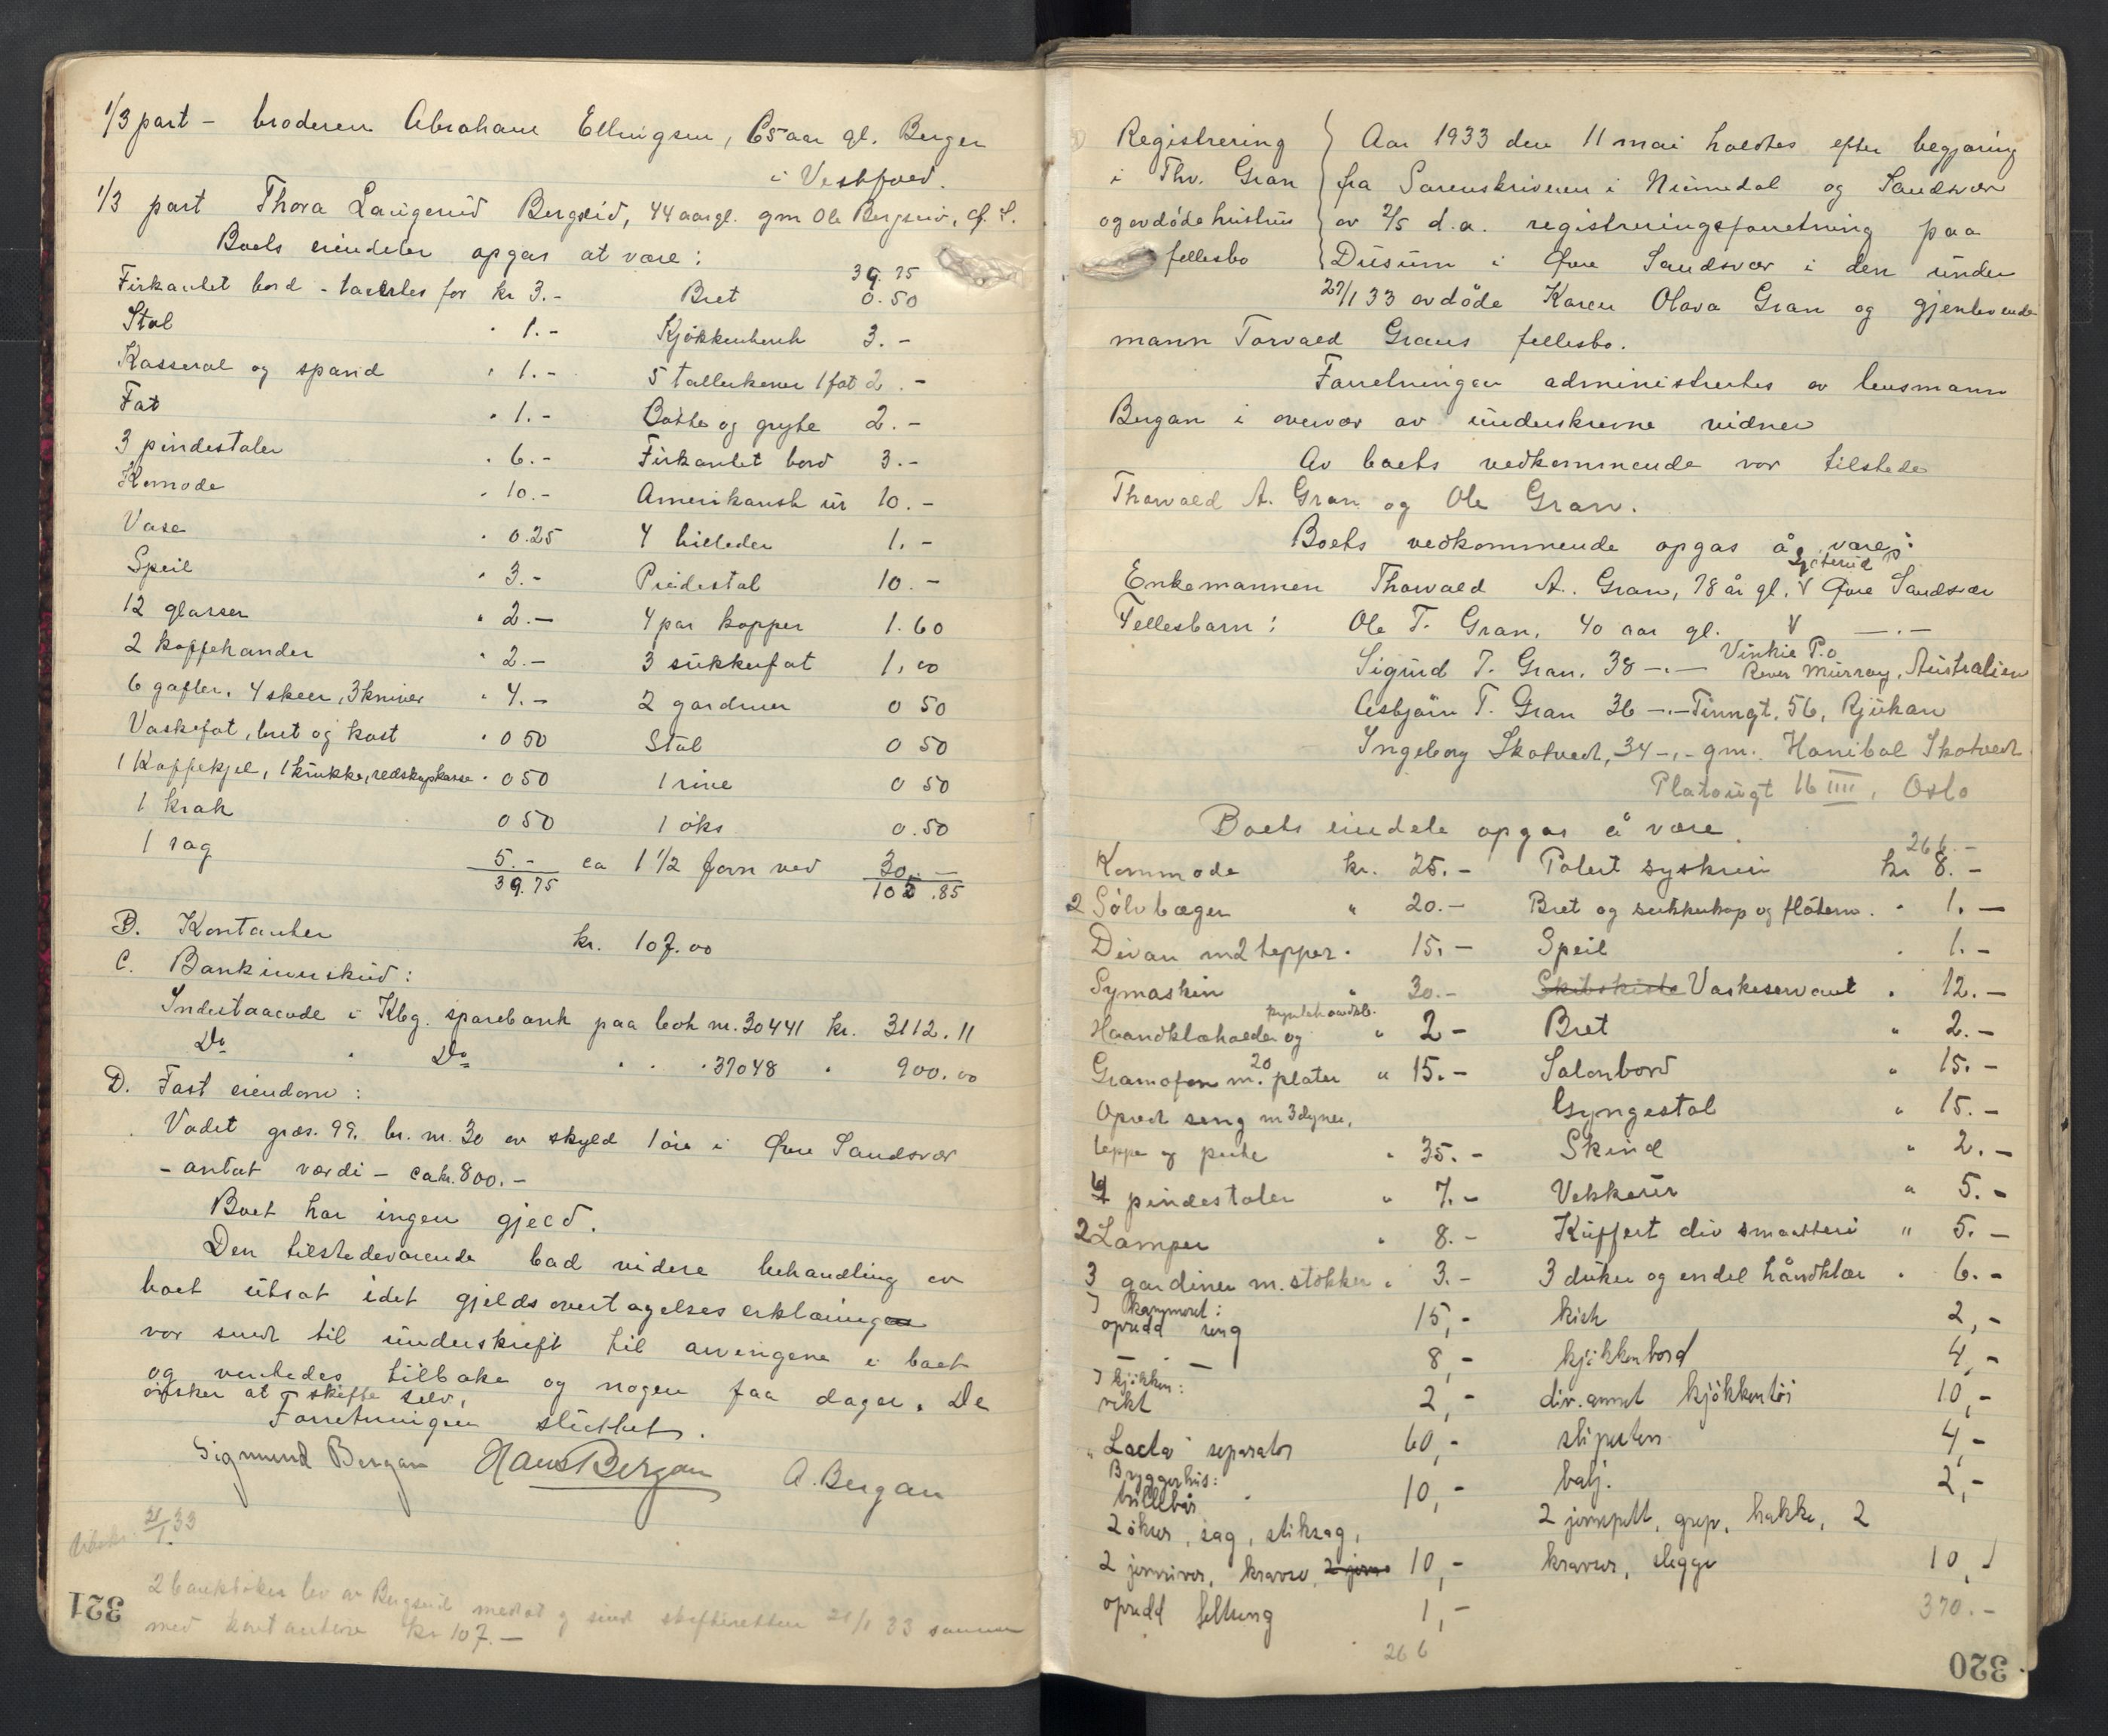 1/3 part - broderen Abraham Ellingsen, 65 aar gl. Berger
i Vestfold.
1/3 part Thora Laugerud Bergseid, 44 aar gl. gm Ole Bergseid, Ø. S.
Boets eiendeler opgas at være:
Firkantet bord - taxertes for kr 3.-
Stol " 1.-
Kasserol og spand " 1.-
Fat " 1.-
3 pindestoler " 6.-
Komode " 10.-
Vase " 0.25
Speil " 3.-
12 glasser " 2.-
2 kaffekander " 2.-
6 gafler, 4 skeer, 3 kniver " 4.-
Vaskefat, bret og kost " 0 50
1 Kaffekjel, 1 krukke, redskapkasse " 0 50
1 krak 0 50
1 sag 5.-
39.75
39.75
Bret 0.50
Kjøkkenbenk 3.-
5 tallerkener 1 fat 2.-
Bøtte og gryte 2.-
Firkantet bord 3.-
Amerikansk ur 10.-
4 billeder 1.-
Piedestal 10.-
4 par kopper 1.60
3 sukkerfat 1.00
2 gardiner 0 50
Stol 0 50
1 rive 0 50
1 øks 0.50
ca 1 1/2 favn ved 30.-
105.85
B. Kontanter kr. 107.00
C. Bankinnskud:
Indestaaende i Kbg. sparebank paa bok nr. 30441 kr. 3112.11
Do " Do " " " 37048 " 900.00
D. Fast eiendom:
Vadet grds. 99. br. nr. 30 av skyld 1 øre i Øvre Sandsvær
- antat værdi - ca kr. 800.-
Boet har ingen gjeld.
Den tilstedeværende bad videre behandling av
boet utsat idet gjeldsovertagelseserklæringen
var sendt til underskrift til arvingene i boet
og ventedes tilbake og nogen faa dager. De
ønsker at skifte selv.
Forretningen sluttet.
Sigmund Bergan Hans Bergan A. Bergan
Utskr. 21/1 33
2 bankbøker lev av Bergseid medtat og sendt skifteretten 21/1 33 sammen
med kontantene kr 107.-
321
Registrering
i Thv. Gran
og avdøde hustrus
fellesbo
Aar 1933 den 11 mai holdtes efter begjæring
fra Sorenskriveren i Numedal og Sandsvær
av 2/5 d.a. registreringsforretning paa
Dusum i Øvre Sandsvær i den under
27/1 33 avdøde Karen Olava Gran og gjenlevende
mann Torvald Grans fellesbo.
Forretningen administrertes av lensmann
Bergan i overvær av underskrevne vidner
Av boets vedkommende var tilstede
Thorvald A. Gran og Ole Gran.
Boets vedkommende opgas å være:
Enkemannen Thorvald A. Gran, 78 år gl. V Øvre Sandsvær
Fellesbarn: Ole T. Gran, 40 aar gl. V —.—
Sigurd T. Gran, 38 —.— Vinkie P.o
River Murray, Australien
Asbjørn T. Gran 36 —.— Tinngt. 56, Rjukan
Ingeborg Skotvedt, 34 -.- gm. Hanibal Skotvedt
Platougt 16 IIII, Oslo
Boets eiendele opgas å være.
Kommode kr. 25.-
2 Sølvbæger " 20.-
Divan m 2 tepper " 15.-
Symaskin " 30.-
Haandklæholder og pyntehåndkl. " 2 -
Gramofon m. 20 plater " 15.-
Opredt seng m 3 dyner,
teppe og pute " 35.-
4 pindestoler " 7.-
2 Lamper " 8.-
3 gardiner m. stokker " 3.-
I kammeret:
opredd seng 15,-
— — 8,-
I kjøkken:
vekt 2,-
"Lacta" separator 60,-
Bryggerhus:
trillebår 10,-
2 økser, sag, stiksag,
2 jernriver, kravse, 2 jern 10,-
opredd feltseng 1,-
266
266.-
Polert syskrin kr 8.-
Bret og sukkerkop og fløtem. " 1.-
Speil " 1.-
Skibskiste Vaskeservant " 12.-
Bret " 2.-
Salonbord " 15.-
Gyngestol " 15.-
Skind " 2.-
Vekkerur " 5.-
Kuffert div smaatteri " 5.-
3 duker og en del håndklær " 6.-
kiste 2,-
kjøkkenbord 4,-
div. annet kjøkkentøi 10,-
slipesten 4,-
balj. 2,-
2 jernspett, grep, hakke, 2
kravser, slegge 10,-
370.-
320